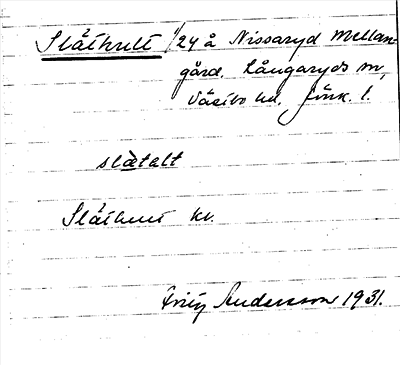 Släthult 1/24 å Nissaryd Mellan-
gård, Långaryds sn,
Västbo hd, Jönk. l.
slætalt
Släthult kv.
Frity Andersson 1931.